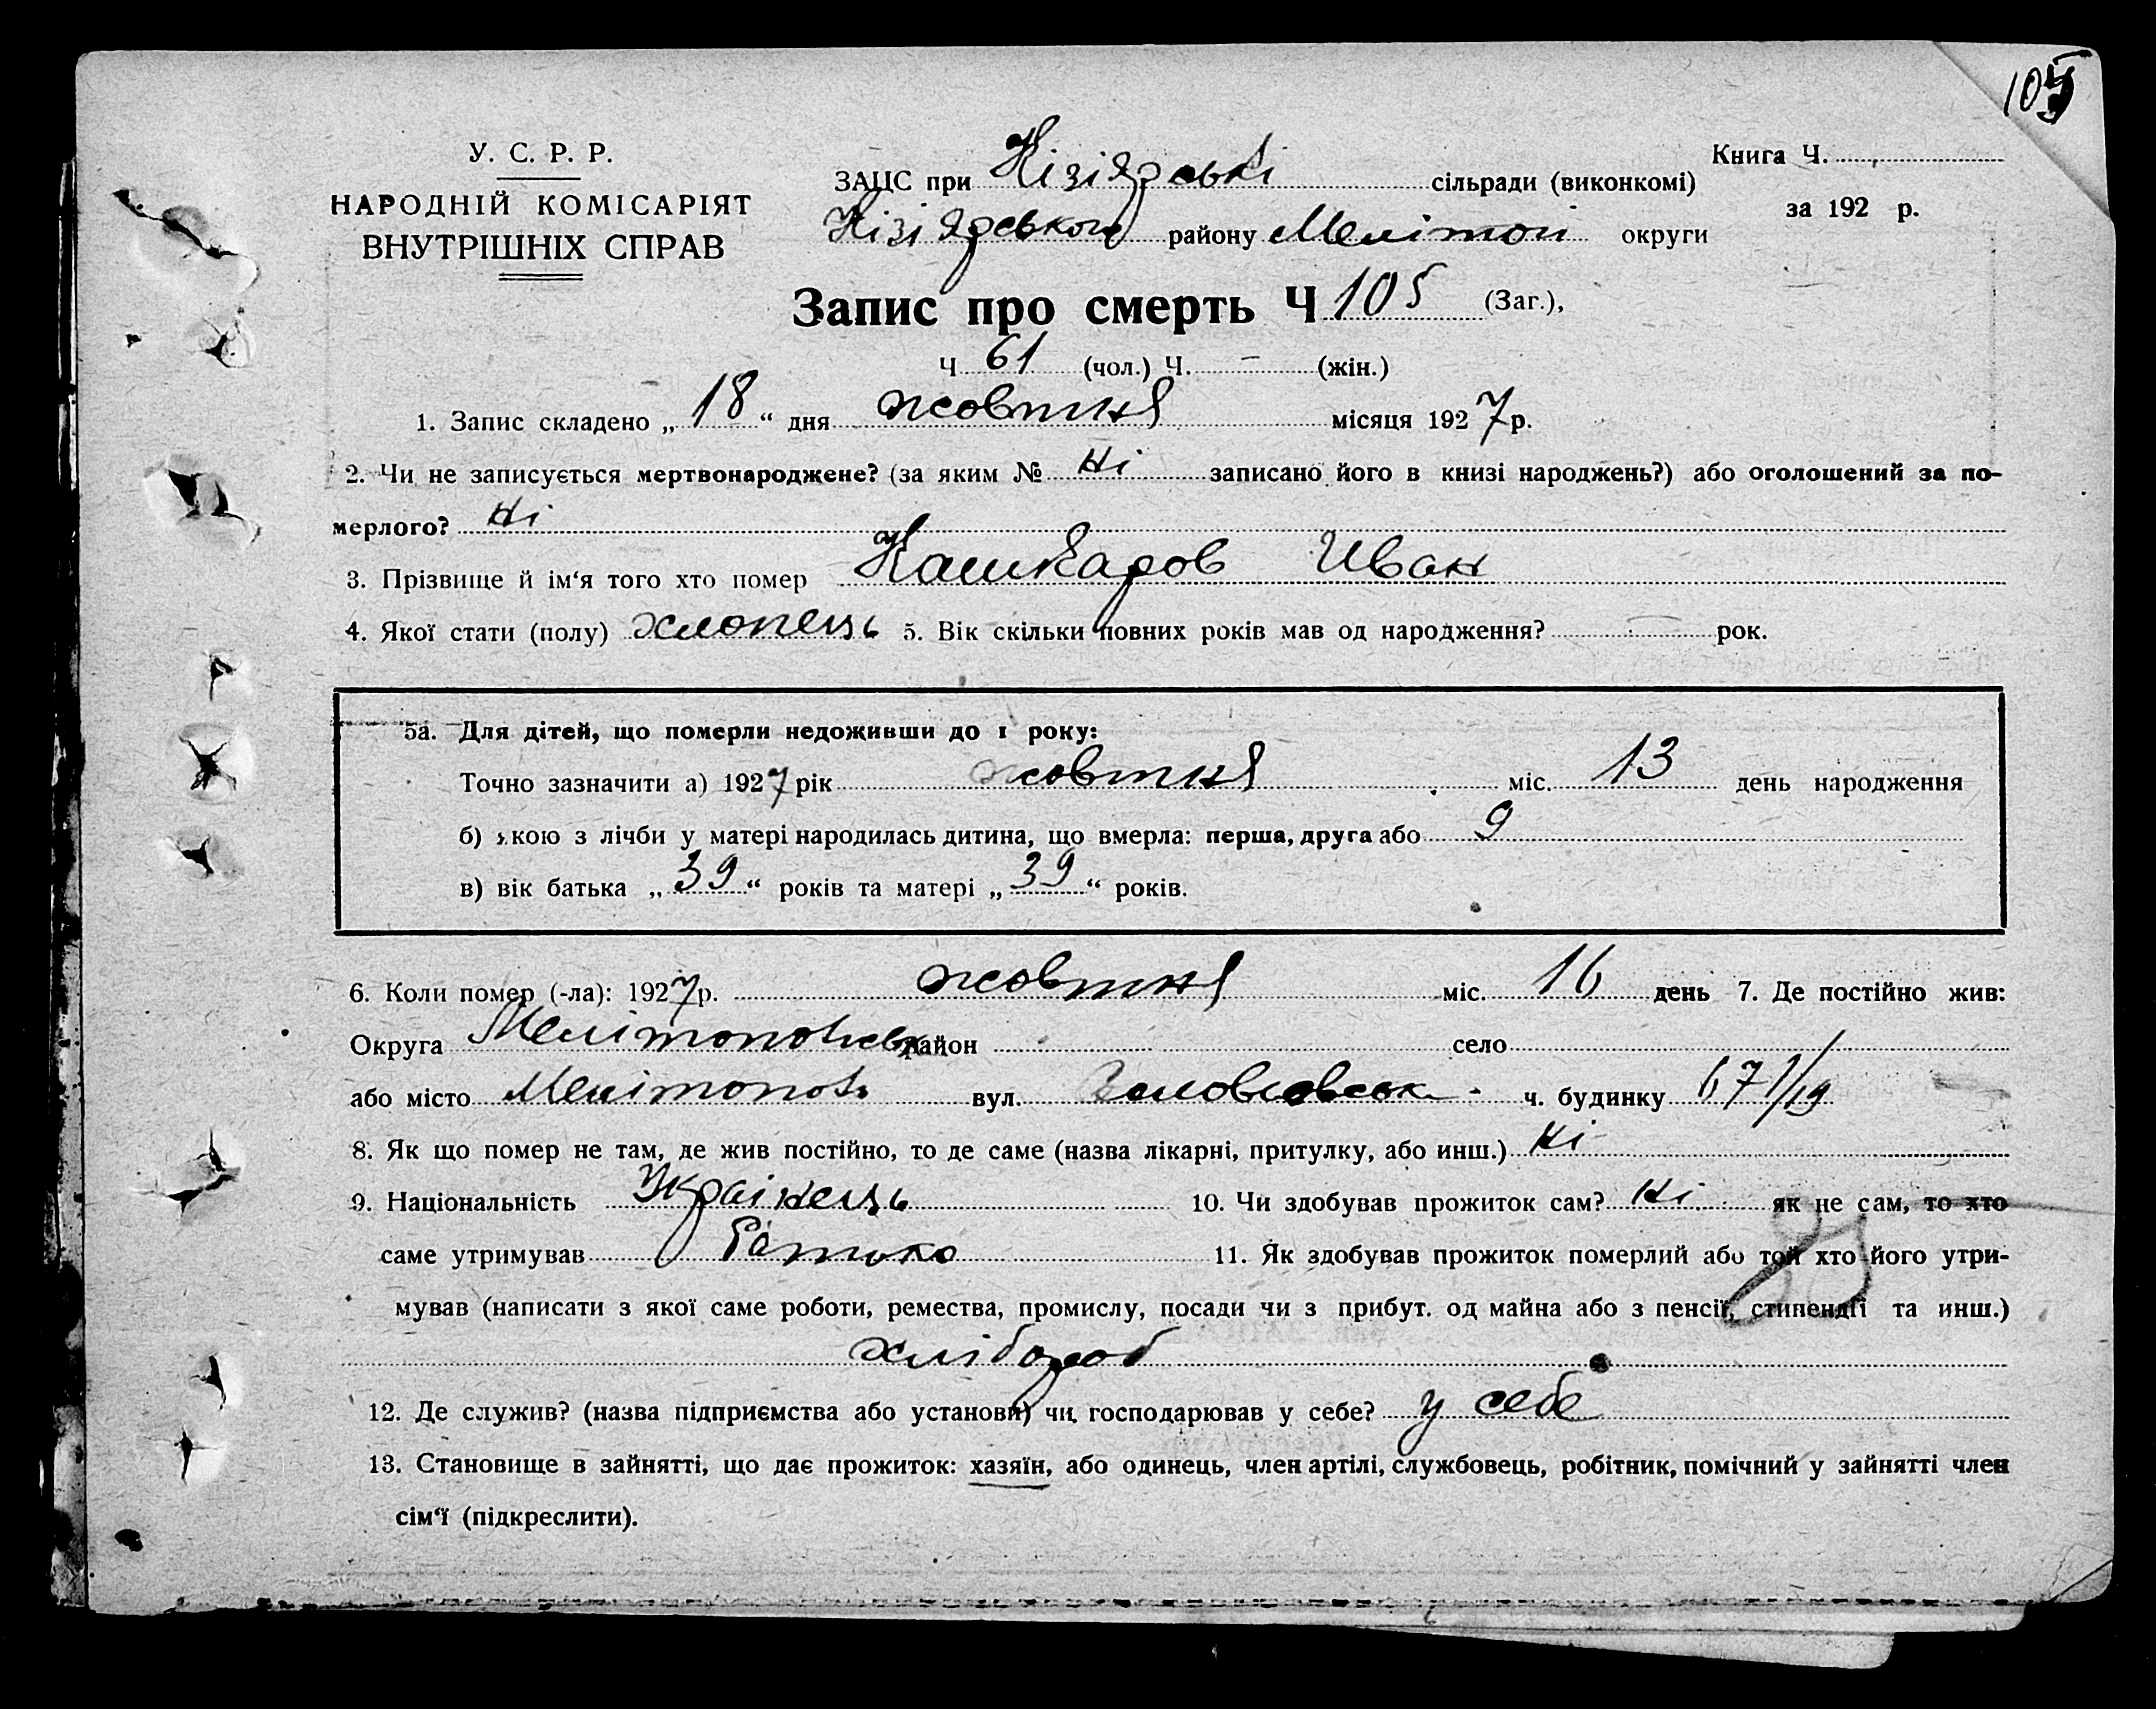 105
У. С. Р. Р.
НАРОДНІЙ КОМІСАРІЯТ
ВНУТРІШНІХ СПРАВ
ЗАЦС при Кізіярські сільради (виконкомі)
Книга Ч.
за 192 р.
Кізіярського району Меліпоп округи
Запис про смерть Ч 105 (Заг.),
Ч 61 (чол.) Ч. — (жін.)
1. Запис складено „ 18 “ дня жовтня місяця 1927 р.
2. Чи не записується мертвонароджене? (за яким № Ні записано його в книзі народжень?) або оголошений за по-
мерлого? Ні
3. Прізвище й ім‘я того хто помер Кашкаров Иван
4. Якої стати (полу) хлопець 5. Вік скільки повних років мав од народження? рок.
5а. Для дітей, що померли недоживши до 1 року:
Точно зазначити а) 1927 рік жовтня міс. 13 день народження
б) якою з лічби у матері народилась дитина, що вмерла: перша, друга або 9
в) вік батька „ 39 “ років та матері „ 39 “ років.
6. Коли помер (-ла): 1927 р. жовтня міс. 16 день 7. Де постійно жив:
Округа район село
або місто Меліпополь вул. ч. будинку 671/19
8. Як що помер не там, де жив постійно, то де саме (назва лікарні, притулку, або инш.) Ні
9. Національність Українець 10. Чи здобував прожиток сам? Ні як не сам, то хто
саме утримував батько 11. Як здобував прожиток померлий або той хто його утри-
мував (написати з якої саме роботи, ремества, промислу, посади чи з прибут. од майна або з пенсії, стипендії та инш.)
хлібороб
12. Де служив? (назва підприємства або установи) чи господарював у себе? у себе
13. Становище в зайнятті, що дає прожиток: хазяїн, або одинець, член артілі, службовець, робітник, помічний у зайнятті член
сім‘ї (підкреслити).